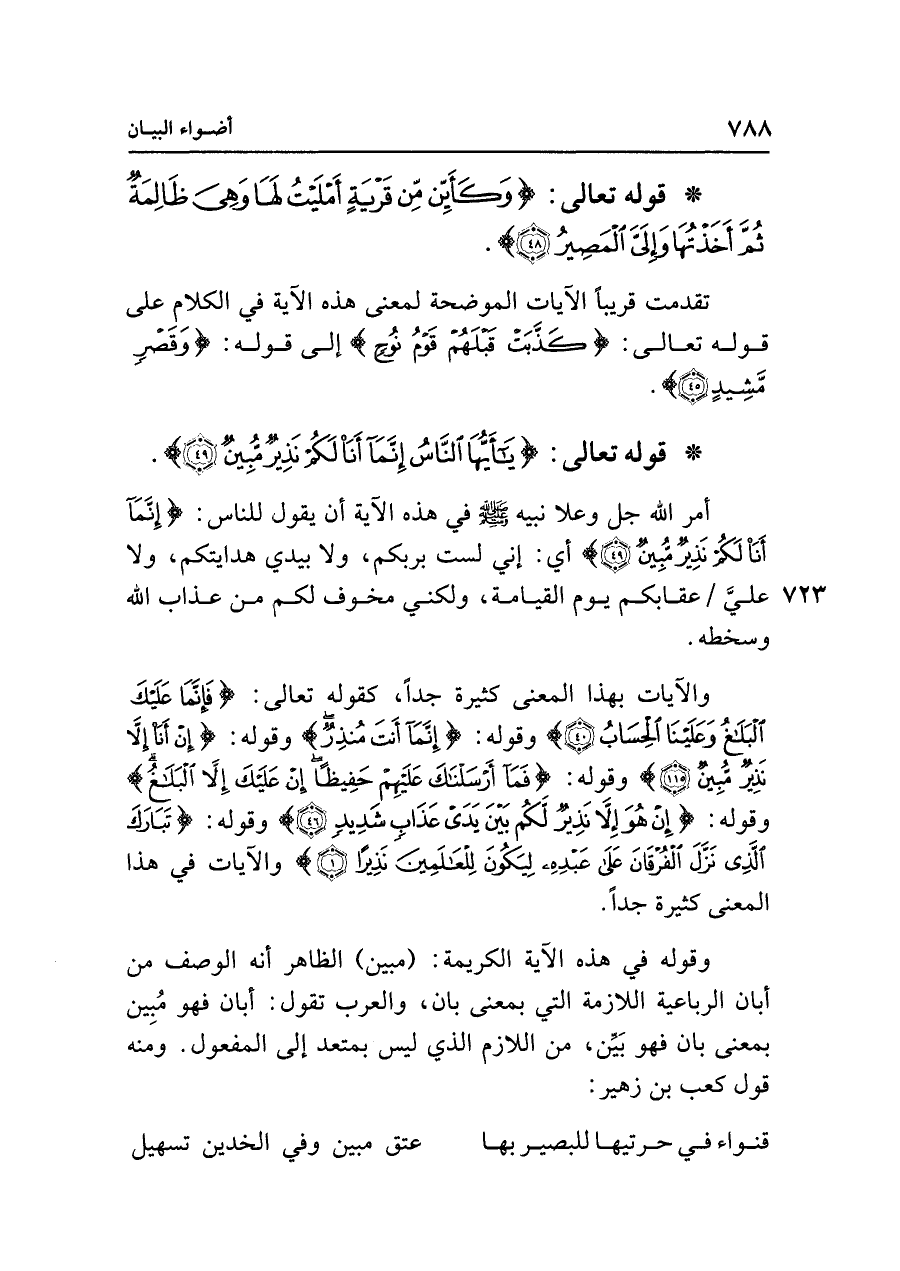 ٧٨٨ أضواء البيان
* قوله تعالى: ﴿وَكَأَيِّن مِّن قَرْيَةٍ أَمْلَيْتُ لَهَا وَهِيَ ظَالِمَةٌ
ثُمَّ أَخَذْتُهَا وَإِلَيَّ الْمَصِيرُ ﴿٤٨﴾﴾.
تقدمت قريباً الآيات الموضحة لمعنى هذه الآية في الكلام على
قوله تعالى: ﴿كَذَّبَتْ قَبْلَهُمْ قَوْمُ نُوحٍ﴾ إلى قوله: ﴿وَقَصْرٍ
مَّشِيدٍ ﴿٤٥﴾﴾.
* قوله تعالى: ﴿يَٰٓأَيُّهَا النَّاسُ إِنَّمَآ أَنَا۠ لَكُمْ نَذِيرٌ مُّبِينٌ ﴿٤٩﴾﴾.
أمر الله جل وعلا نبيه ﷺ في هذه الآية أن يقول للناس: ﴿إِنَّمَآ
أَنَا۠ لَكُمْ نَذِيرٌ مُّبِينٌ ﴿٤٩﴾﴾ أي: إني لست بربكم، ولا بيدي هدايتكم، ولا
٧٢٣ عليَّ / عقابكم يوم القيامة، ولكني مخوف لكم من عذاب الله
وسخطه.
والآيات بهذا المعنى كثيرة جداً، كقوله تعالى: ﴿فَإِنَّمَا عَلَيْكَ
الْبَلَٰغُ وَعَلَيْنَا الْحِسَابُ ﴿٤٠﴾﴾ وقوله: ﴿إِنَّمَآ أَنتَ مُنذِرٌۖ﴾ وقوله: ﴿إِنْ أَنَا۠ إِلَّا
نَذِيرٌ مُّبِينٌ ﴿١١٥﴾﴾ وقوله: ﴿فَمَآ أَرْسَلْنَٰكَ عَلَيْهِمْ حَفِيظًاۖ إِنْ عَلَيْكَ إِلَّا الْبَلَٰغُۗ﴾
وقوله: ﴿إِنْ هُوَ إِلَّا نَذِيرٌ لَّكُم بَيْنَ يَدَيْ عَذَابٍ شَدِيدٍ ﴿٤٦﴾﴾ وقوله: ﴿تَبَارَكَ
الَّذِي نَزَّلَ الْفُرْقَانَ عَلَىٰ عَبْدِهِۦ لِيَكُونَ لِلْعَٰلَمِينَ نَذِيرًا ﴿١﴾﴾ والآيات في هذا
المعنى كثيرة جداً.
وقوله في هذه الآية الكريمة: (مبين) الظاهر أنه الوصف من
أبان الرباعية اللازمة التي بمعنى بان، والعرب تقول: أبان فهو مُبِين
بمعنى بان فهو بَيِّن، من اللازم الذي ليس بمتعد إلى المفعول. ومنه
قول كعب بن زهير:
قنواء في حرتيها للبصير بها عتق مبين وفي الخدين تسهيل